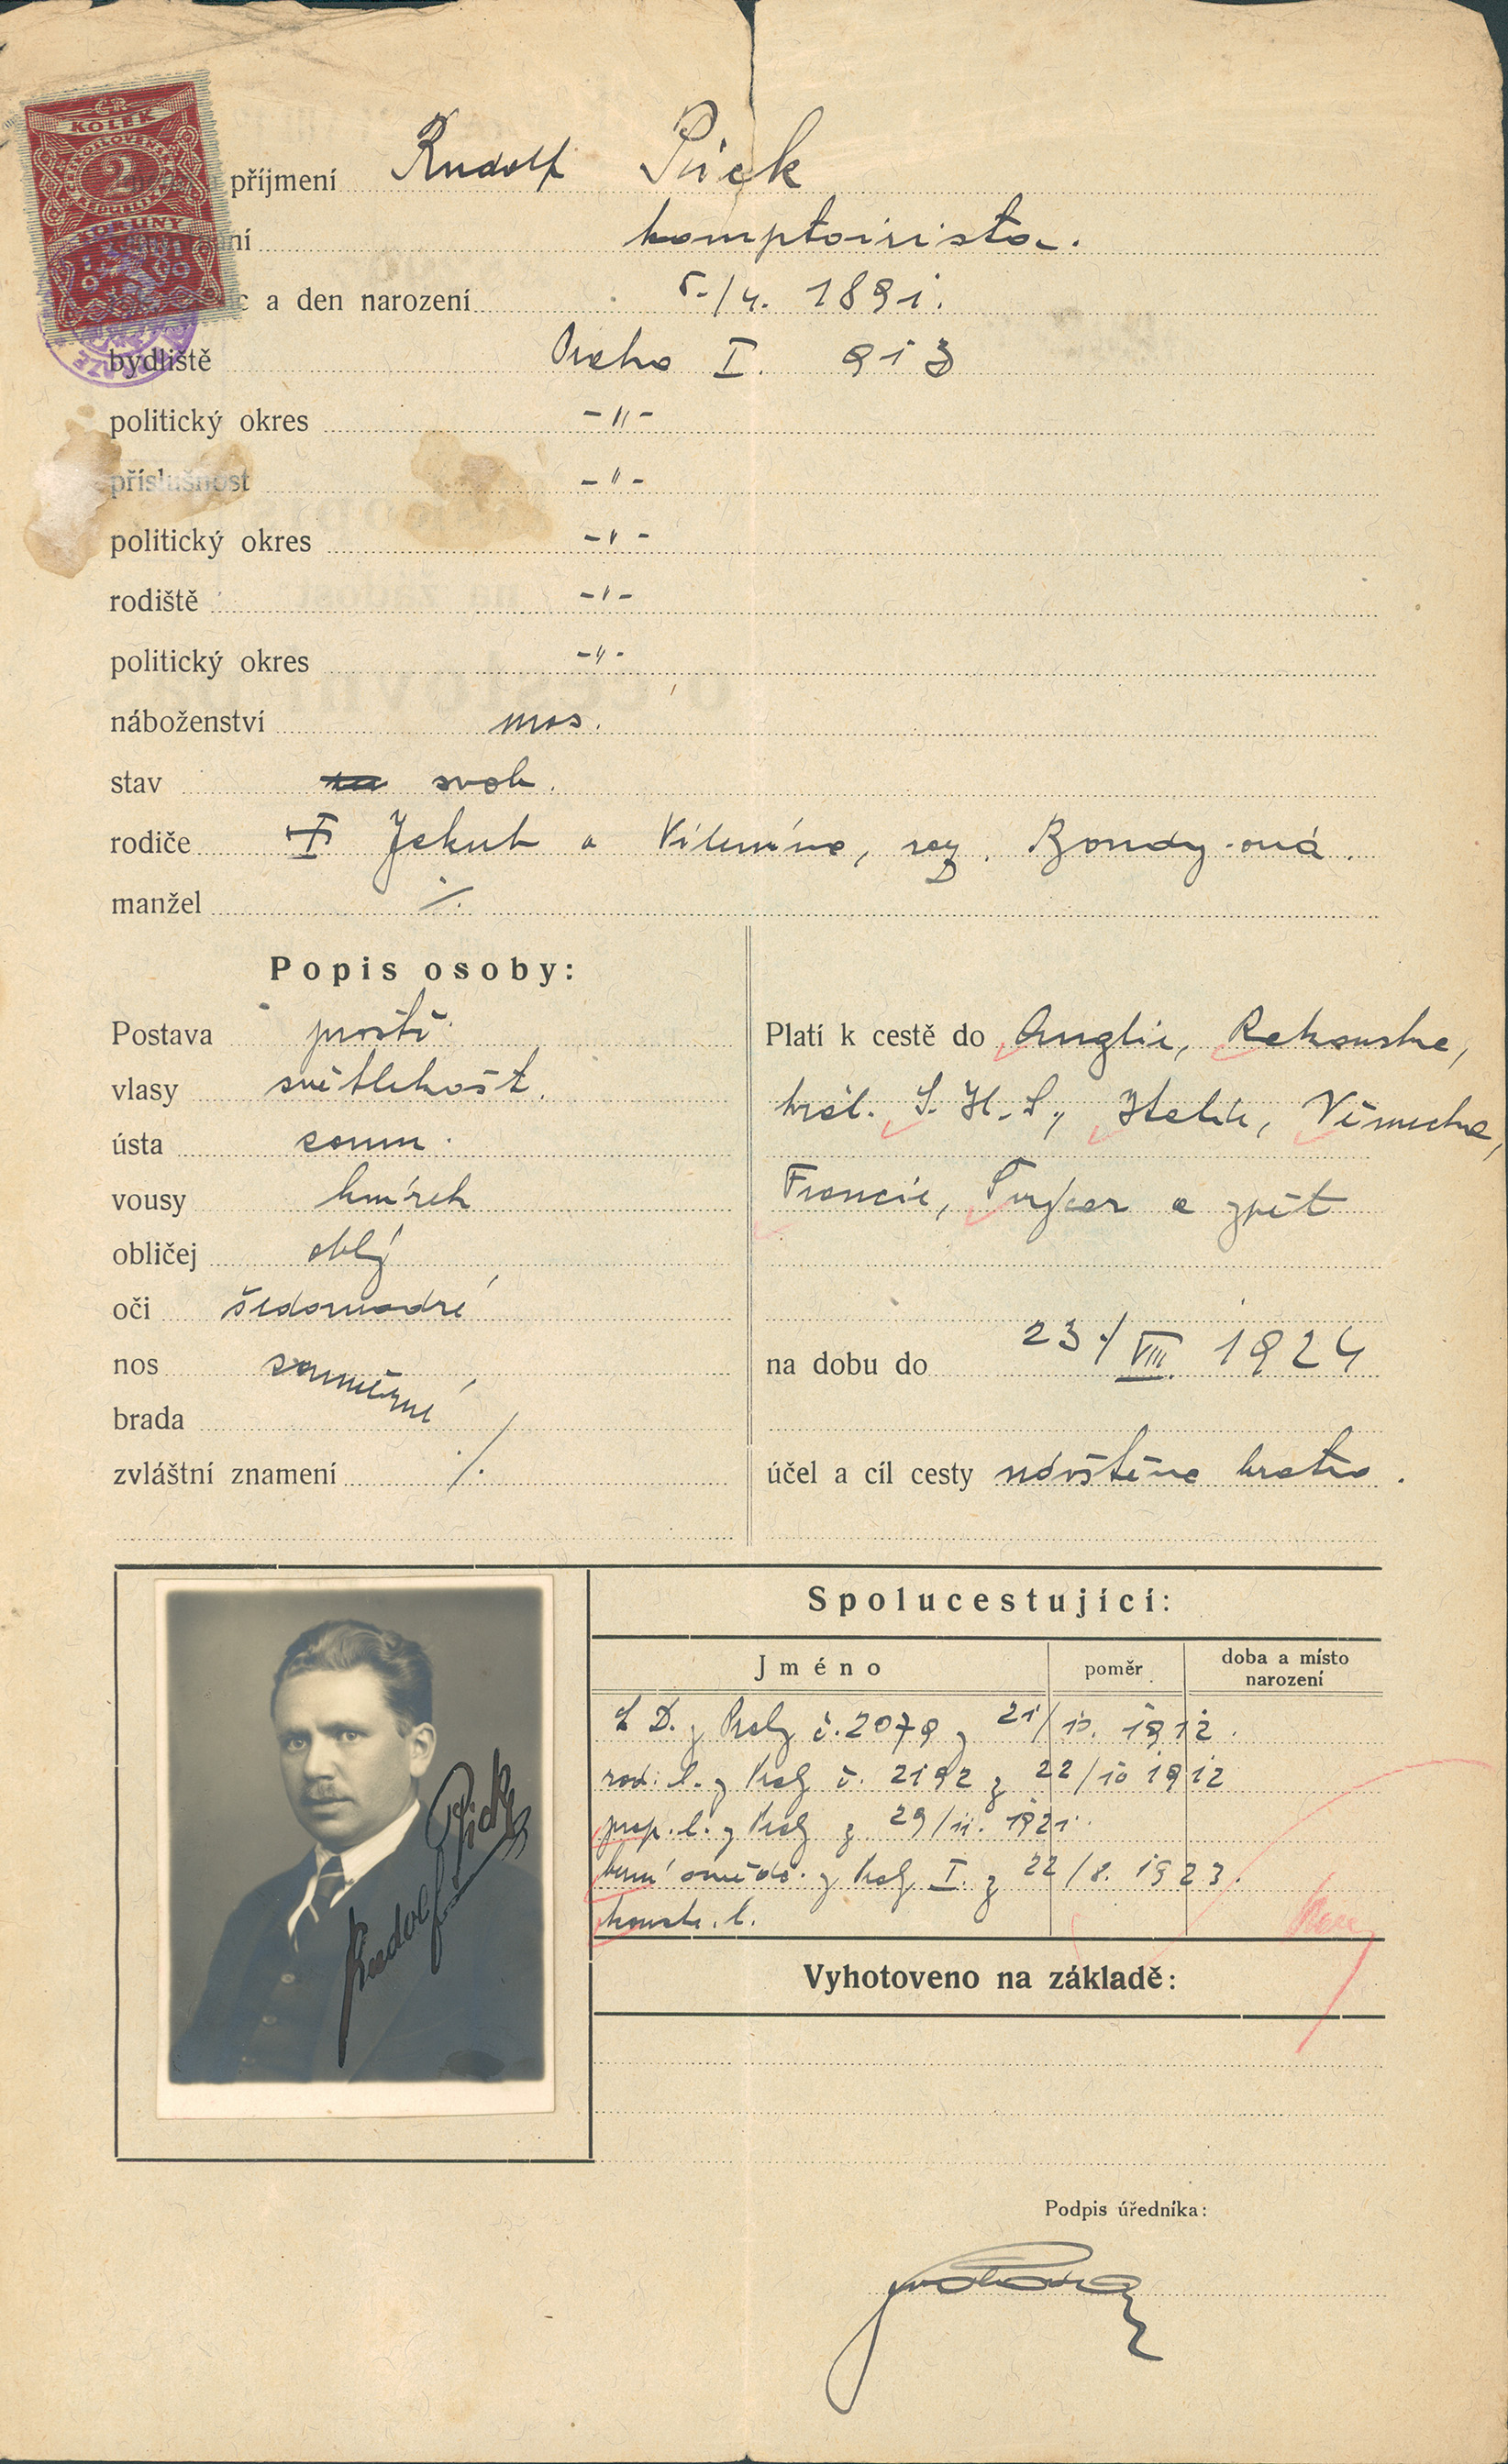 ČR
KOLEK
2
KORUNY
1919
příjmení Rudolf Pick
ní komptoirista.
c a den narození 5./4. 1891.
bydliště Praha I. 913
politický okres -"-
příslušnost -"-
politický okres -"-
rodiště -"-
politický okres -"-
náboženství mos.
stav svob.
rodiče † Jakub a Vilemína, roz. Bondy-ová.
manžel ./.
Popis osoby:
Postava prostř.
vlasy světlekašt.
ústa soum.
vousy knírek
obličej oblý
oči šedomodré
nos souměrný
brada
zvláštní znamení ./.
Platí k cestě do Anglie, Rakouska,
král. S.H.S., Italie, Německa,
Francie, Švýcar a zpět
na dobu do 23./VIII. 1924
účel a cíl cesty návštěva bratra.
Rudolf Pick
Spolucestující:
Jméno poměr doba a místo narození
D. z Prahy č. 2079 z 21/10. 1912.
rod. l. z Prahy č. 2192 z 22/10 1912
prop. l. z Prahy z 29/11. 1921.
berní osvědč. z Prahy I. z 22/8. 1923.
l.
Vyhotoveno na základě:
Podpis úředníka: